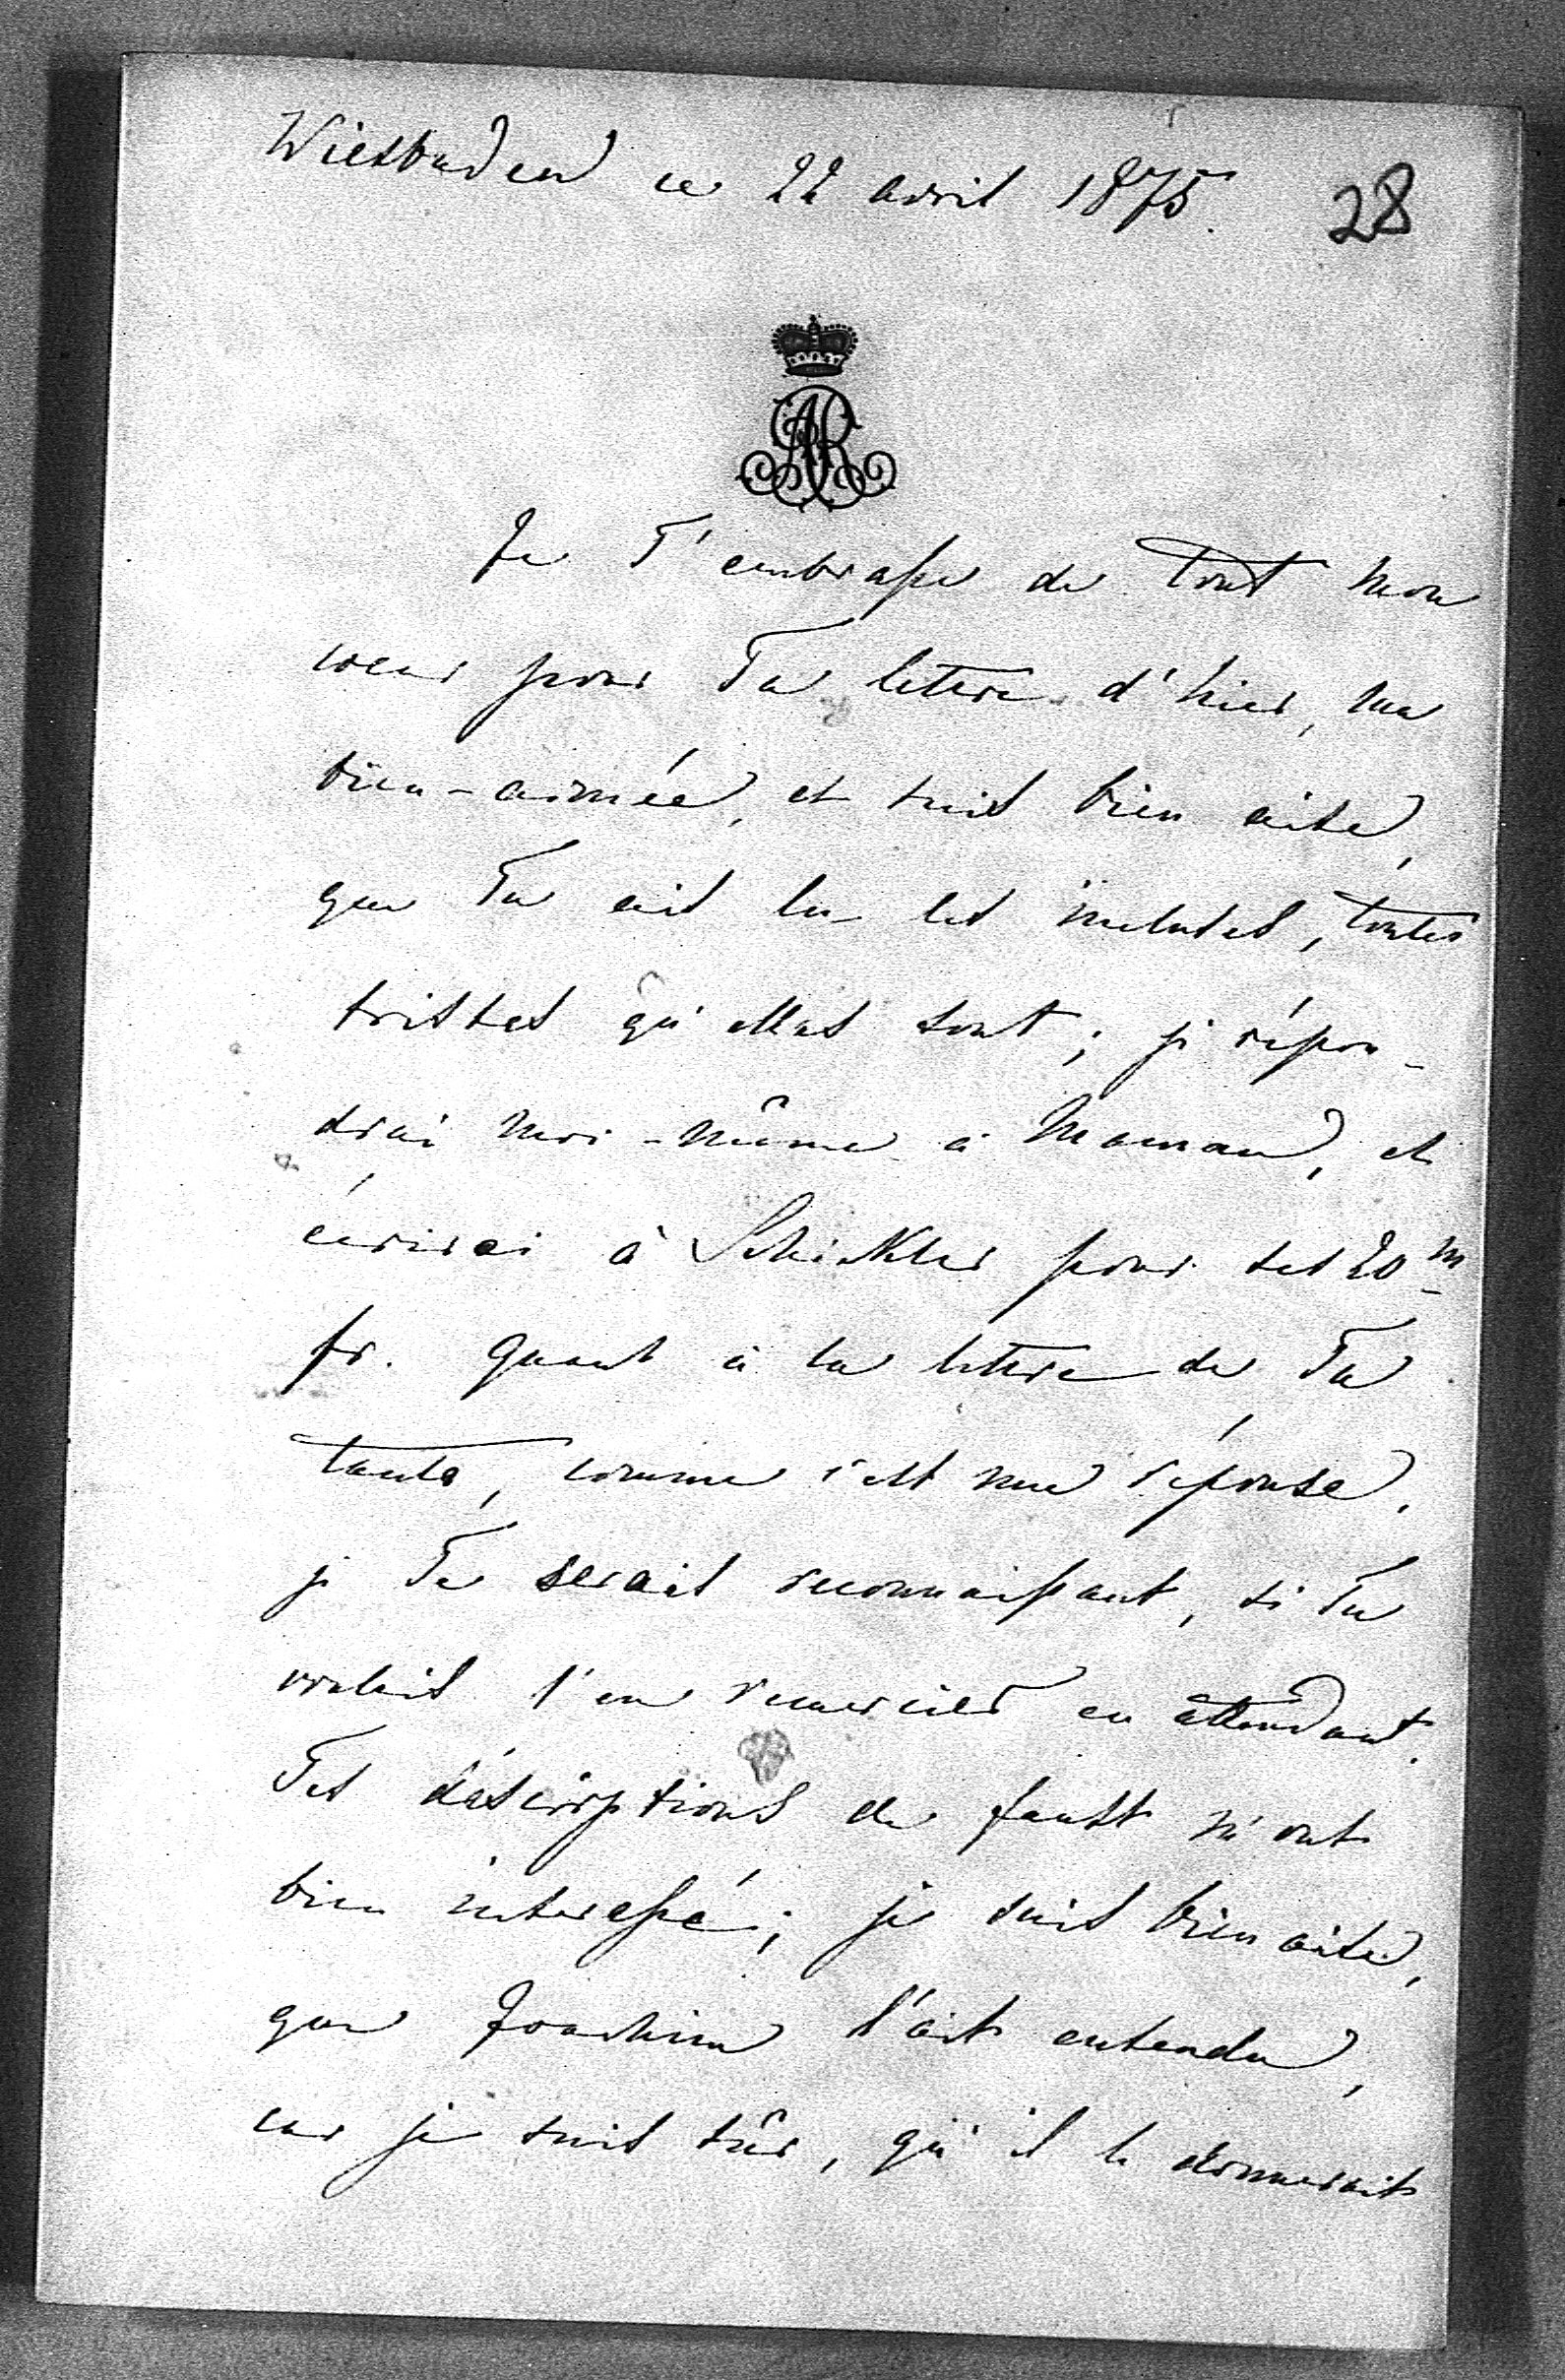 Wiesbaden ce 22 avril 1875.
28
AR
Je T'embrasse de tout mon
coeur pour Ta lettre d'hier, ma
bien-aimée, et suis bien aise,
que Tu ais lu les incluses, toutes
tristes qu'elles sont; je répon-
drai moi-même à Maman, et
écrirai à Schickler pour ses 20 m
fr. Quant à la lettre de Ta
tante, comme c'est une réponse,
je Te serais reconnaissant, si Tu
voulais l'en remercier en attendant.
Tes déscriptions de faust m'ont
bien interessé; je suis bien aise,
que Joachim l'ait entendu,
car je suis sûr, qu'il le donnerait